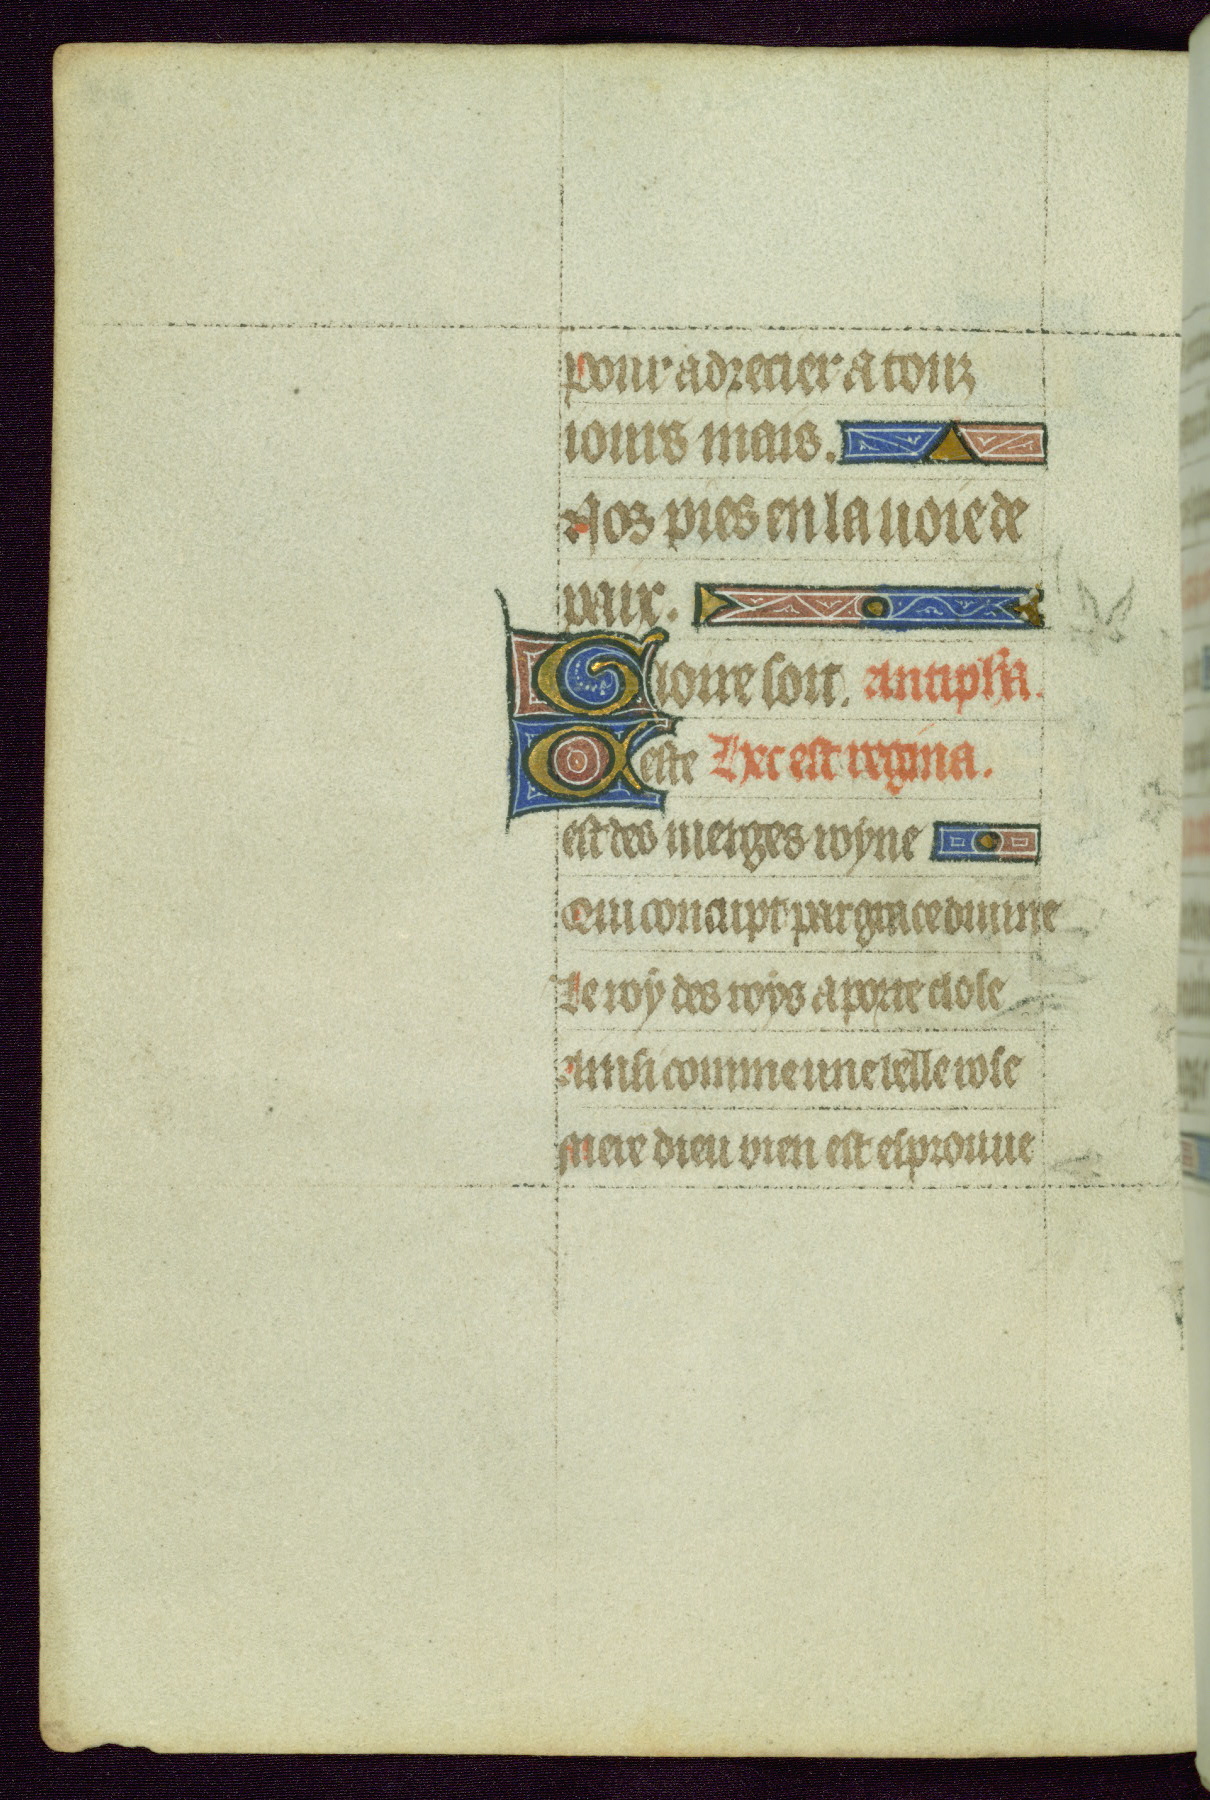 Pour adrecier a touz
iours mais.
Nos pies en la uoie de
paix.
Gloire soit. antipha.
Ceste Hec est regina.
est des uierges royne
Qui conciupt par grace diuine
Le roy des roys a porte close
Ainsi comme une belle rose
Mere dieu bien est esprouue